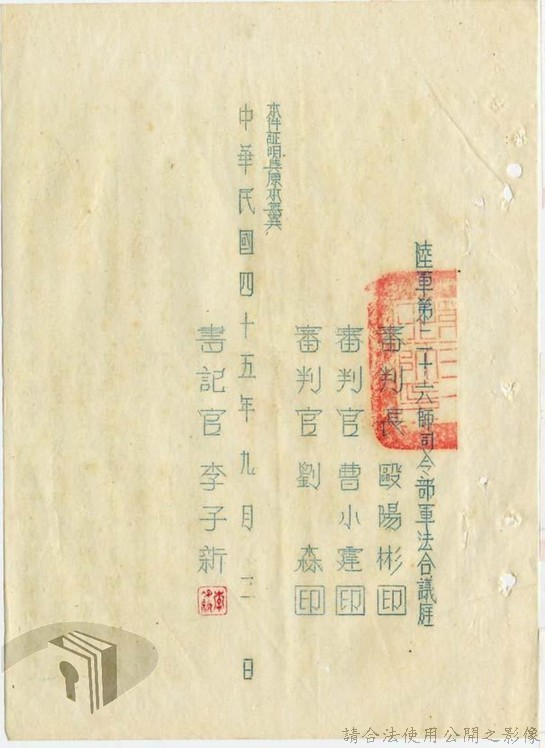 陸軍第二十六師司令部軍法合議庭
審判長 毆陽彬 印
審判官 曹小霆 印
審判官 劉 森 印
本件証明與原本無異
中華民國四十五年九月三日
書記官 李子新
請合法使用公開之影像